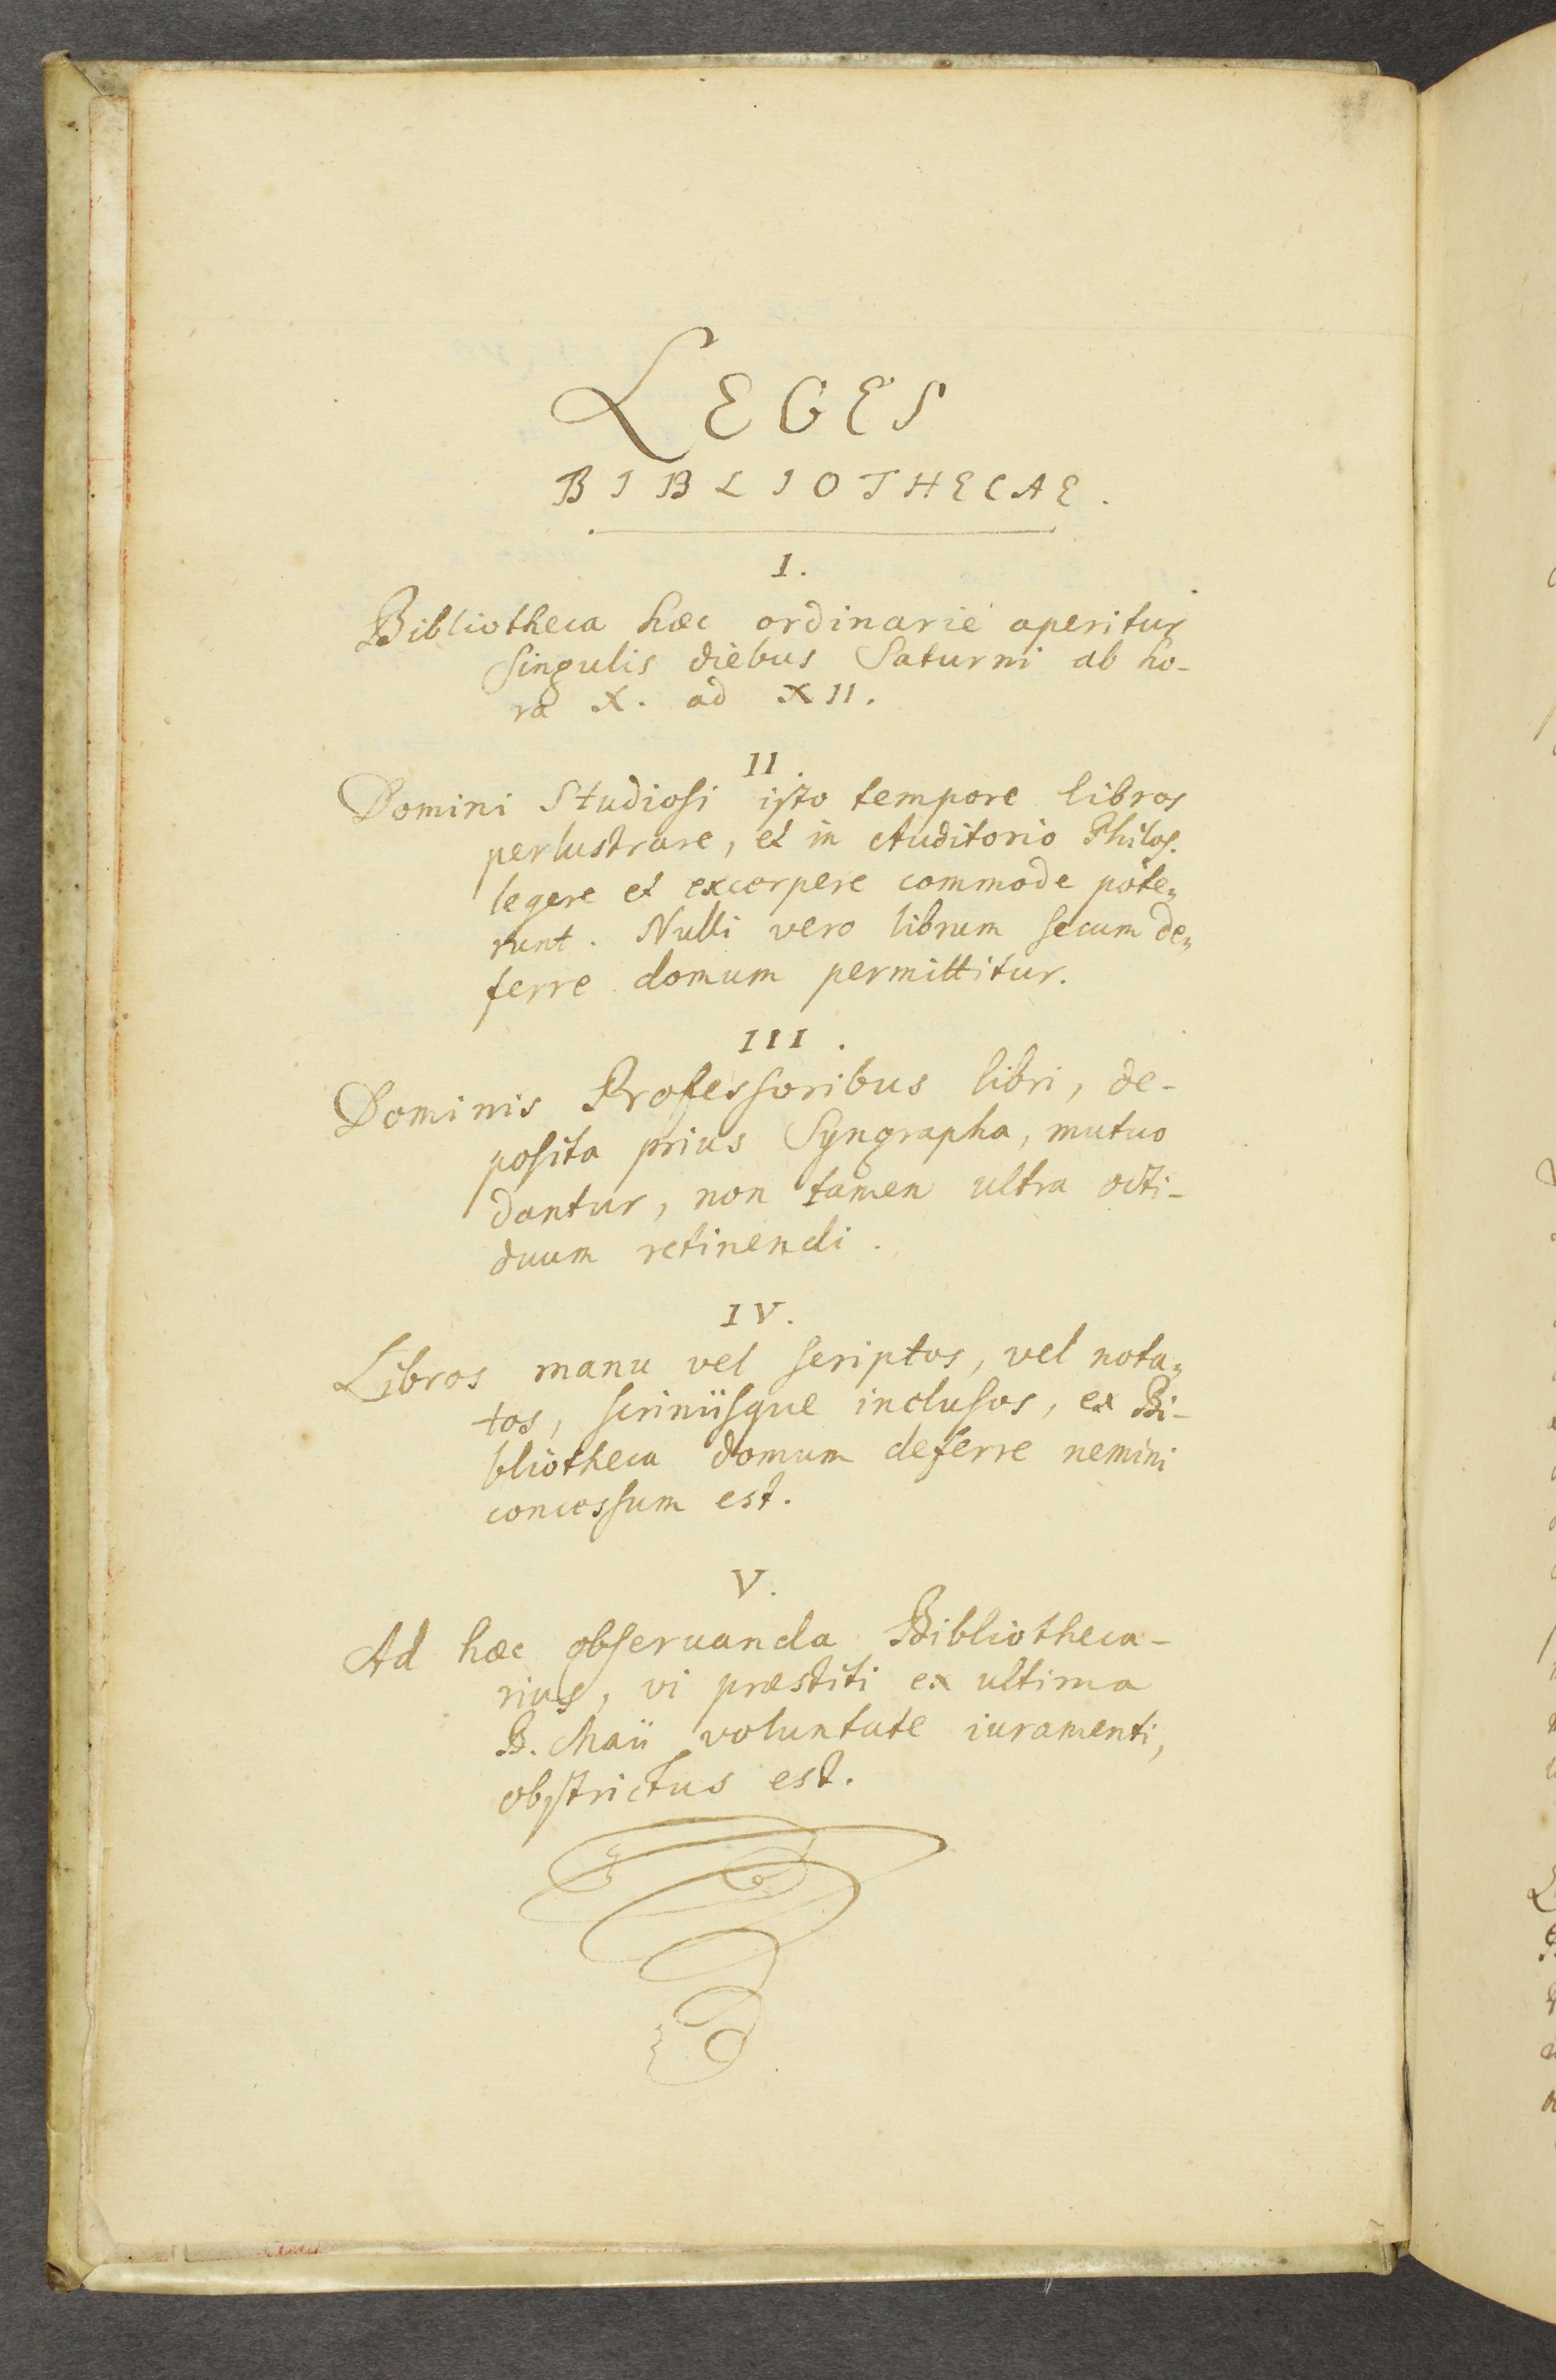 LEGES
BIBLIOTHECAE.
I.
Bibliotheca hæc ordinarie aperitur
singulis diebus Saturni ab ho-
ra X. ad XII.
II.
Domini Studiosi isto tempore libros
perlustrare, et in Auditorio Philos.
legere et excerpere commode pote„
runt. Nulli vero librum secum de„
ferre domum permittitur.
III.
Dominis Professoribus libri, de-
posita prius Syngrapha, mutuo
dantur, non tamen ultra octi-
duum retinendi.
IV.
Libros manu vel scriptos, vel nota„
tos, scriniisque inclusos, ex Bi-
bliotheca domum deferre nemini
concessum est.
V.
Ad hæc obseruanda Bibliotheca-
rius, vi præstiti ex ultima
B. Maii voluntate iuramenti,
obstrictus est.